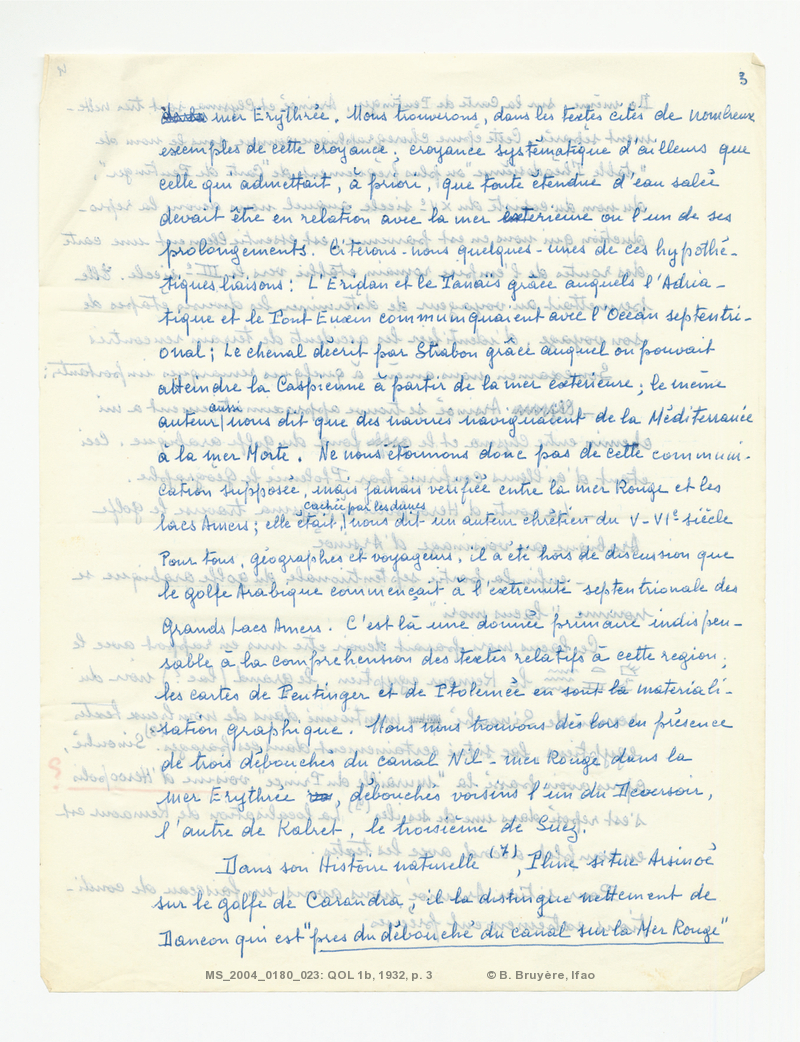 3
mer Erythrée. Nous trouverons, dans les textes cités de nombreux
exemples de cette croyance; croyance systématique d'ailleurs que
celle qui admettait, à priori, que toute étendue d'eau salée
devait être en relation avec la mer exterieure ou l'un de ses
prolongements. Citerons-nous quelques-unes de ces hypothé-
tiques liaisons: L'Eridan et le Tanaïs grâce auquels l'Adria-
tique et le Pont Euxin communiquaient avec l'Océan septentri-
onal; Le chenal décrit par Strabon grâce auquel on pouvait
atteindre la Caspienne à partir de la mer exterieure; le même
auteur aussi nous dit que des navires naviguaient de la Méditerranée
à la mer Morte. Ne nous étonnons donc pas de cette communi-
cation supposée, mais jamais verifiée entre la mer Rouge et les
lacs Amers; elle était cachée par les dunes, nous dit un auteur chrétien du V-VIe siècle
Pour tous, géographes et voyageurs, il a été hors de discussion que
le golfe Arabique commençait à l'extremité septentrionale des
Grands Lacs Amers. C'est là une donnée primaire indispen-
sable à la comprehension des textes relatifs à cette region;
les cartes de Peutinger et de Ptolemée en sont la materiali-
sation graphique. Nous nous trouvons dès lors en présence
de trois débouchés du canal Nil-mer Rouge dans la
Mer Erythrée, débouchés voisins l'un du Deversoir,
l'autre de Kabret, le troisième de Suez.
Dans son Histoire naturelle (7), Pline situe Arsinoé
sur le golfe de Carandra; il la distingue nettement de
Daneon qui est "pres du débouché du canal sur la Mer Rouge"
MS_2004_0180_023: QOL 1b, 1932, p. 3 © B. Bruyère, Ifao